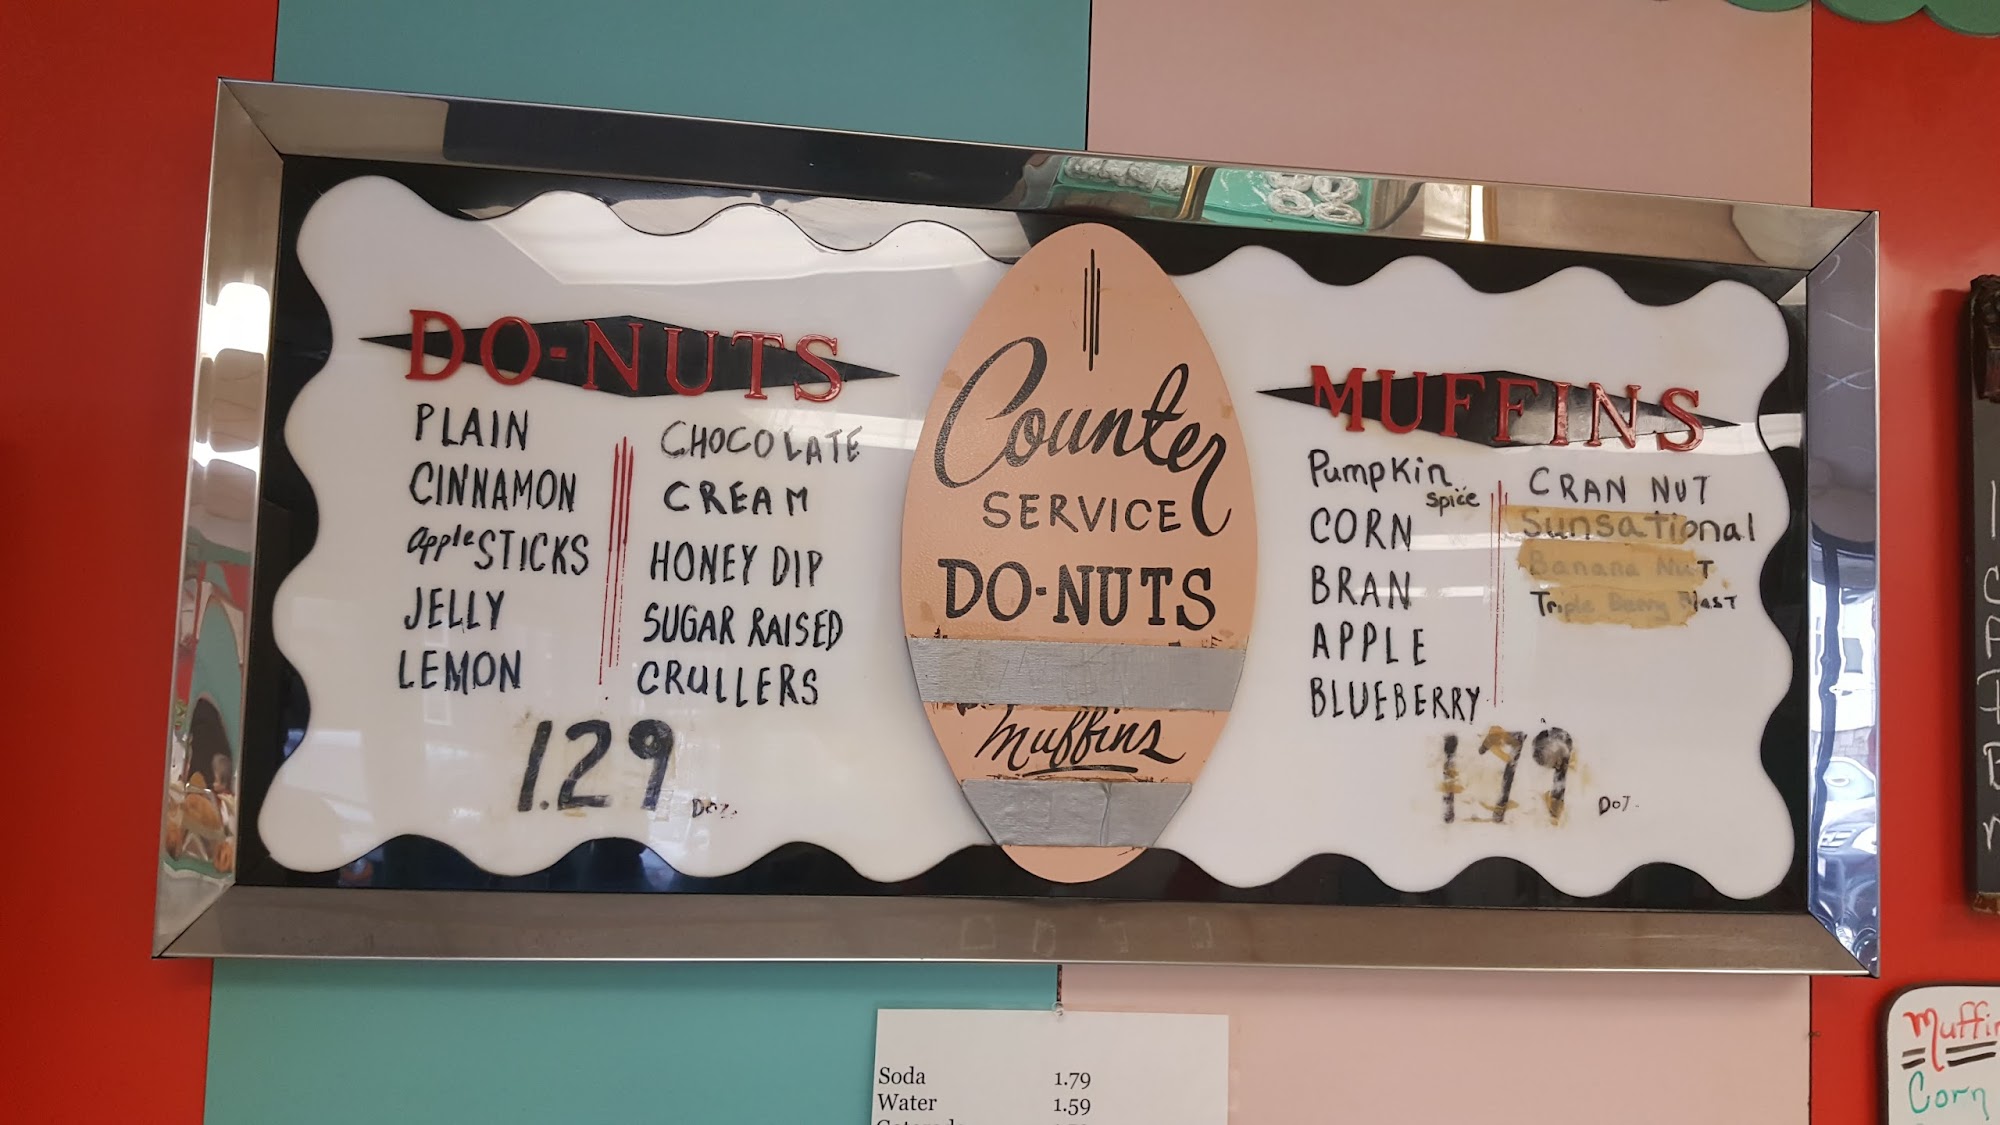 DO-NUTS
PLAIN
CINNAMON
apple STICKS
JELLY
LEMON
CHOCOLATE
CREAM
HONEY DIP
SUGAR RAISED
CRULLERS
1.29
DOZ.
Counter
SERVICE
DO-NUTS
Muffins
MUFFINS
Pumpkin
Spice
CORN
BRAN
APPLE
BLUEBERRY
CRAN NUT
Sunsational
Banana Nut
Triple Berry Blast
179
DOZ.
Soda 1.79
Water 1.59
Muffin
Corn